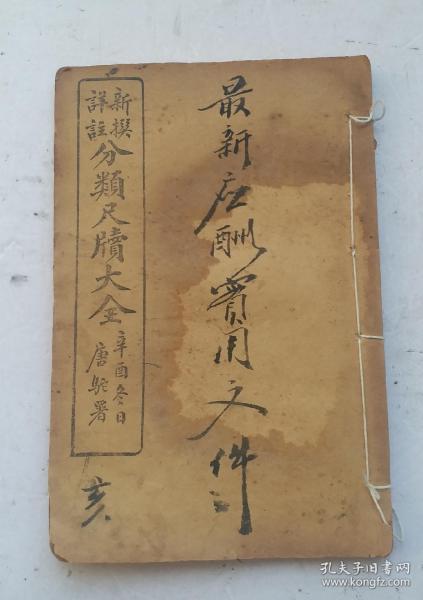 最新应酬實用文件
新撰
詳註
分類尺牘大全
辛酉冬日
唐駝署
亥
孔夫子旧书网
www.kongfz.com